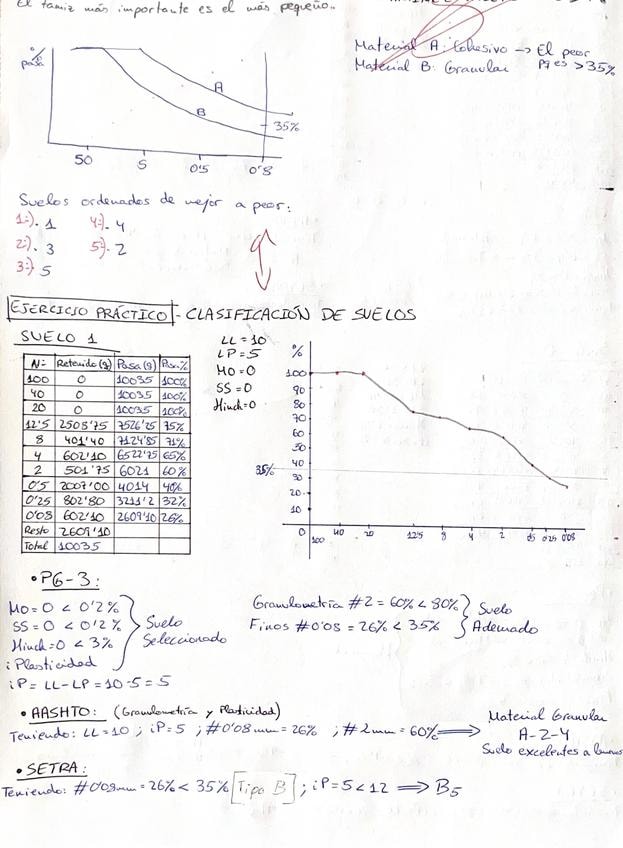 El tamiz más importante es el más pequeño..
Material A: Cohesivo → El peor
Material B: Granular pq es >35%
%
pasa
A
B
35%
50 5 0'5 0'8
Suelos ordenados de mejor a peor:
1º). 1 4º). 4
2º). 3 5º). 2
3º) 5
EJERCICIO PRÁCTICO - CLASIFICACIÓN DE SUELOS
SUELO 1
LL = 10
LP = 5
MO = 0
SS = 0
Hinch = 0
Nº Retenido (g) Pasa (g) Pasa%
100 0 10035 100%
40 0 10035 100%
20 0 10035 100%
12'5 2508'75 7526'25 75%
8 401'40 7124'85 71%
4 602'10 6522'75 65%
2 501'75 6021 60%
0'5 2007'00 4014 40%
0'25 802'80 3211'2 32%
0'08 602'10 2609'10 26%
Resto 2609'10
Total 10035
%
100
90
80
70
60
50
40
35%
30
20
10
0
100 40 20 12'5 8 4 2 0'5 0'25 0'08
• PG-3:
MO = 0 < 0'2%
SS = 0 < 0'2%
Hinch = 0 < 3%
Suelo
Seleccionado
¡Plasticidad
iP = LL - LP = 10 - 5 = 5
Granulometría #2 = 60% < 80%
Finos #0'08 = 26% < 35%
Suelo
Adecuado
• AASHTO: (Granulometría y Plasticidad)
Teniendo: LL = 10 ; iP = 5 ; #0'08 mm = 26% ; #2mm = 60% ⟹ Material Granular
A-2-4
Suelo excelentes a buenos
• SETRA:
Teniendo: #0'08mm = 26% < 35% [Tipo B] ; iP = 5 < 12 ⟹ B5